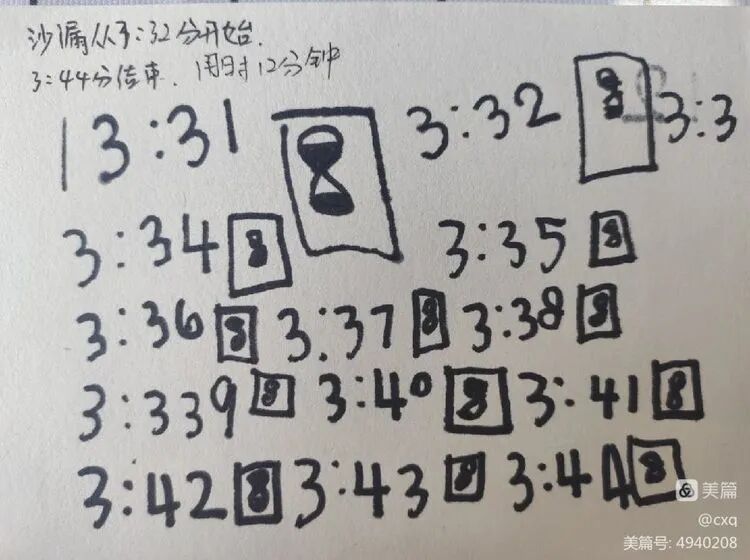 沙漏从3:32分开始.
3:44分结束. 用时12分钟
13:31 3:32 3:3
3:34 3:35
3:36 3:37 3:38
3:339 3:40 3:41
3:42 3:43 3:44
美篇
@cxq
美篇号: 4940208